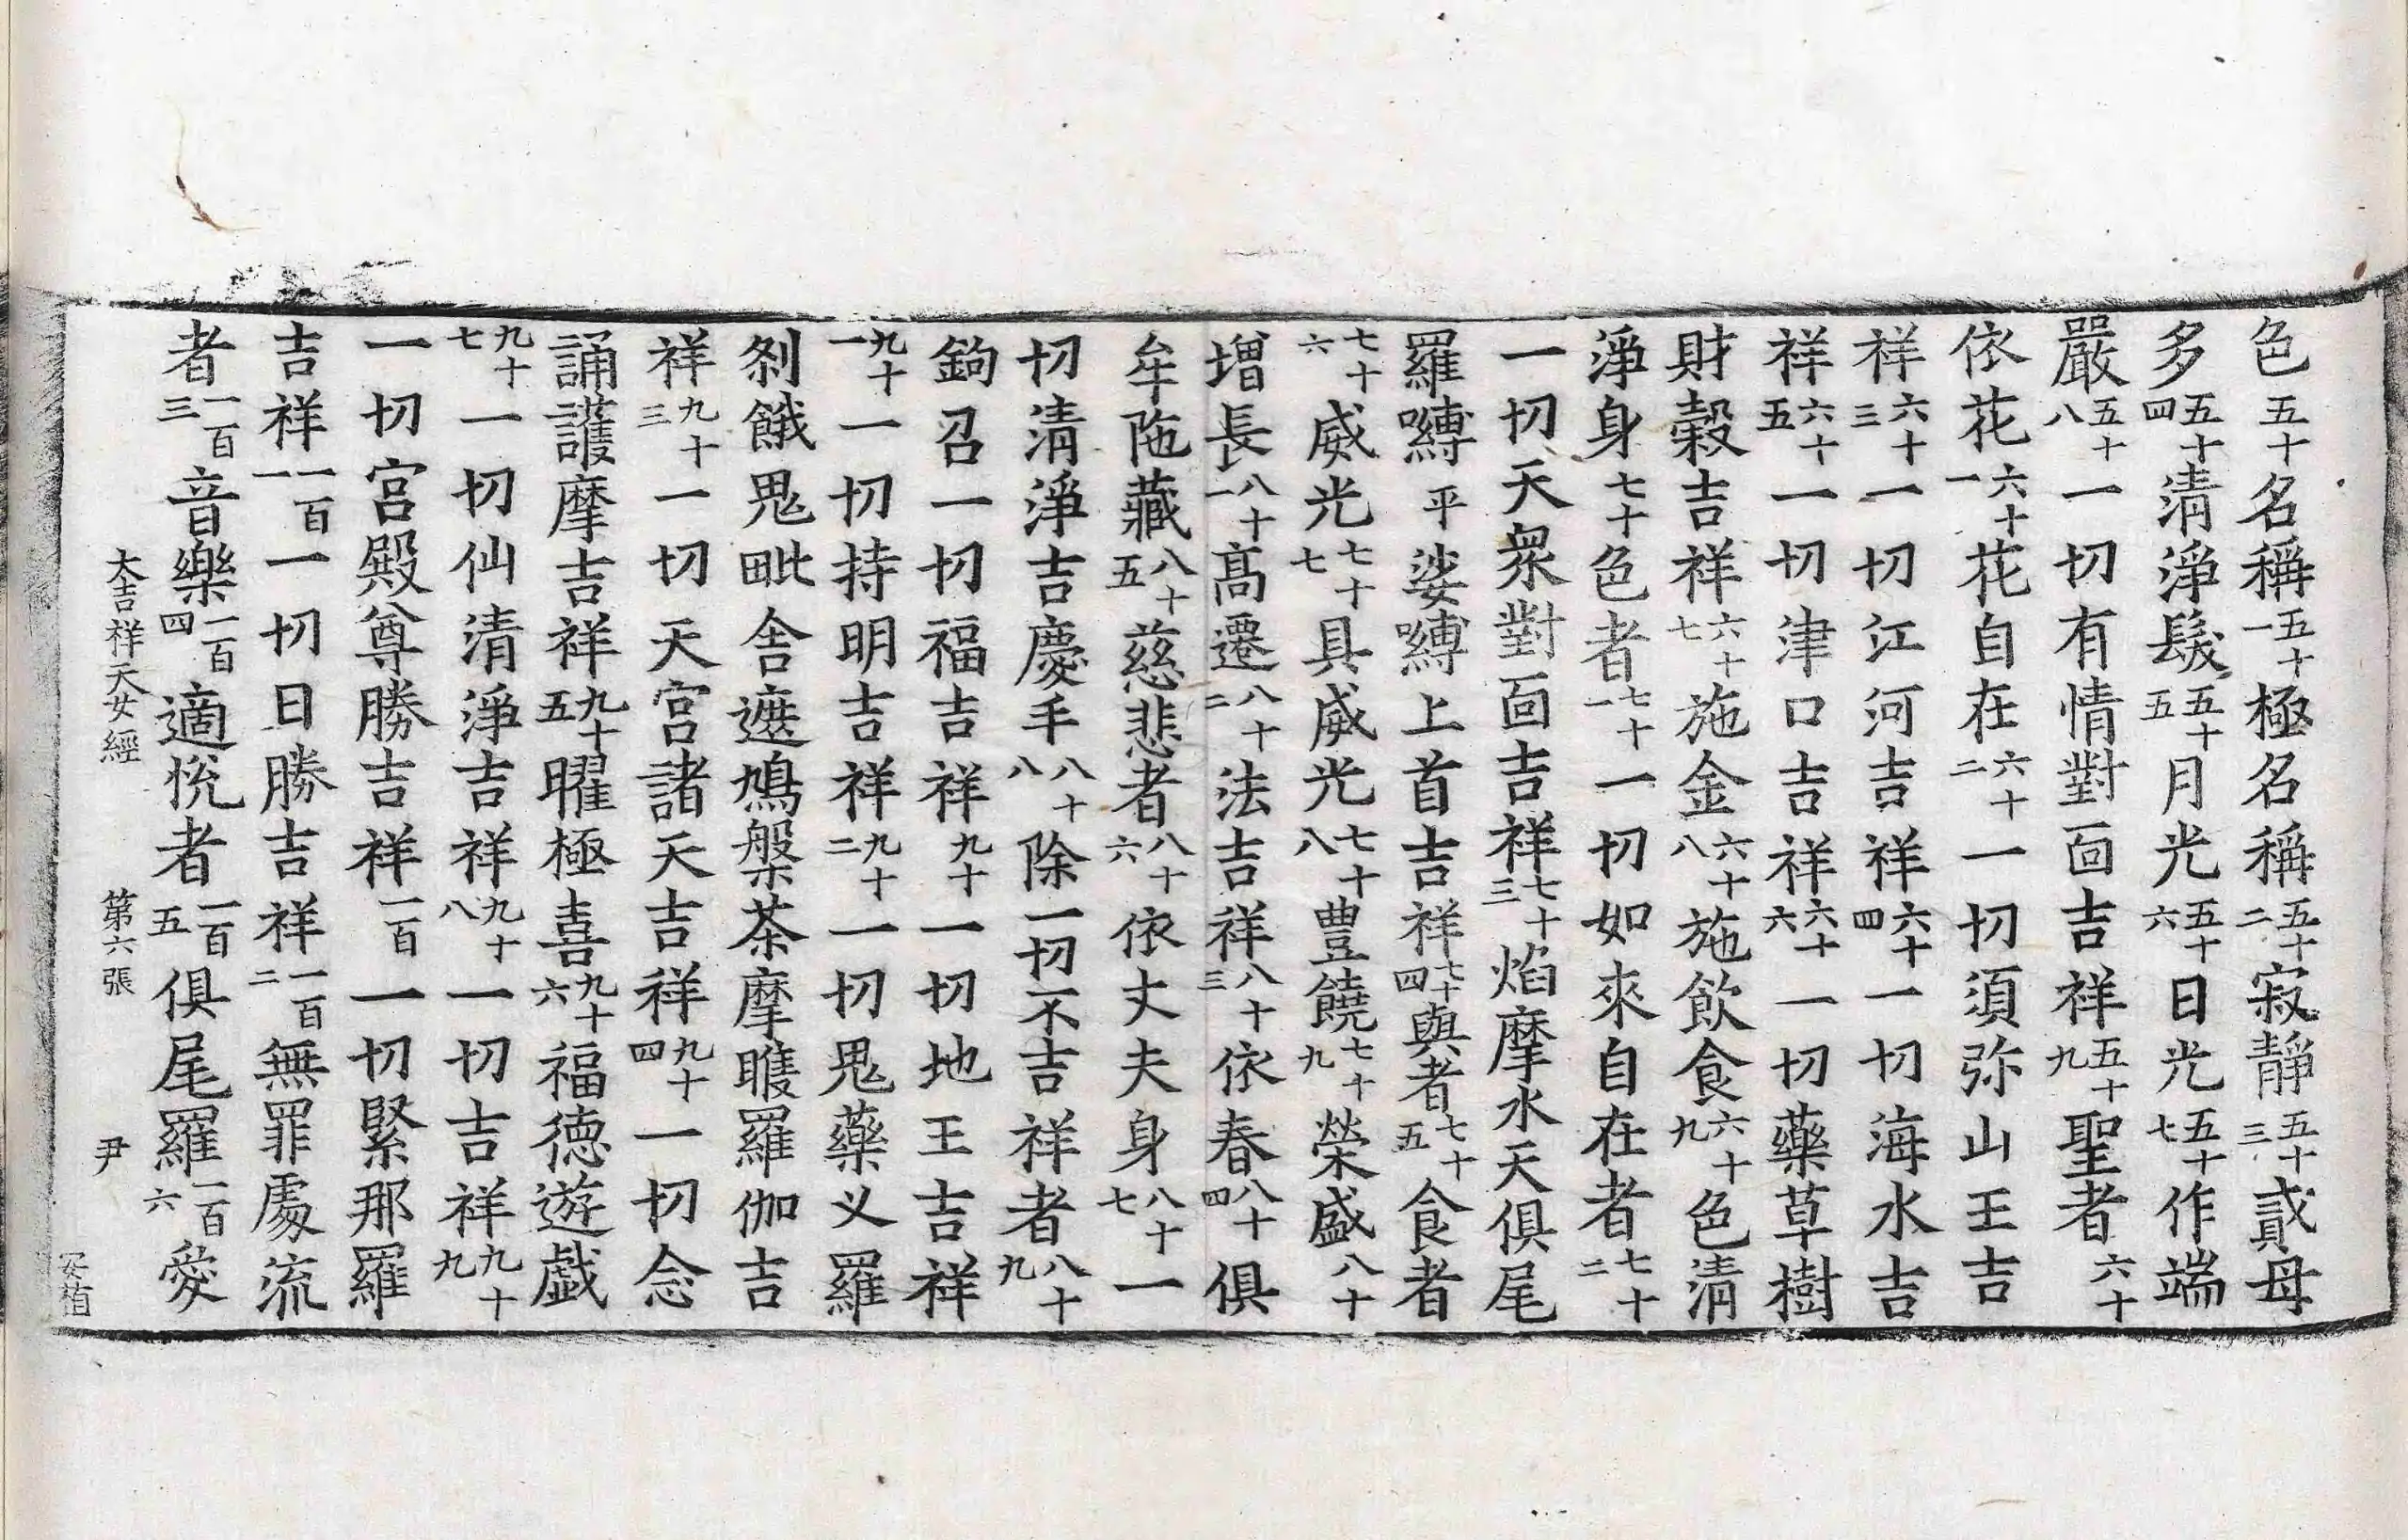 色五十名稱五十一極名稱五十二寂靜五十三貳母
多五十四清淨髮五十五月光五十六日光五十七作端
嚴五十八一切有情對面吉祥五十九聖者六十
依花六十一花自在六十二一切須弥山王吉
祥六十三一切江河吉祥六十四一切海水吉
祥六十五一切津口吉祥六十六一切藥草樹
財穀吉祥六十七施金六十八施飲食六十九色清
淨身七十色者七十一一切如來自在者七十二
一切天衆對面吉祥七十三焰摩水天俱尾
羅嚩平娑嚩上首吉祥七十四與者七十五食者
七十六威光七十七具威光七十八豊饒七十九榮盛八十
增長八十一髙遷八十二法吉祥八十三依春八十四俱
牟陁藏八十五慈悲者八十六依丈夫身八十七一
切清淨吉慶手八十八除一切不吉祥者八十九
鉤召一切福吉祥九十一切地王吉祥
九十一一切持明吉祥九十二一切鬼藥义羅
刹餓鬼毗舍遮鳩槃茶摩睺羅伽吉
祥九十三一切天宫諸天吉祥九十四一切念
誦護摩吉祥九十五曜極喜九十六福德遊戯
九十七一切仙清淨吉祥九十八一切吉祥九十九
一切宫殿尊勝吉祥一百一切緊那羅
吉祥一百一一切日勝吉祥一百二無罪處流
者一百三音樂一百四適悅者一百五俱尾羅一百六愛
大吉祥天女經 第六張 尹